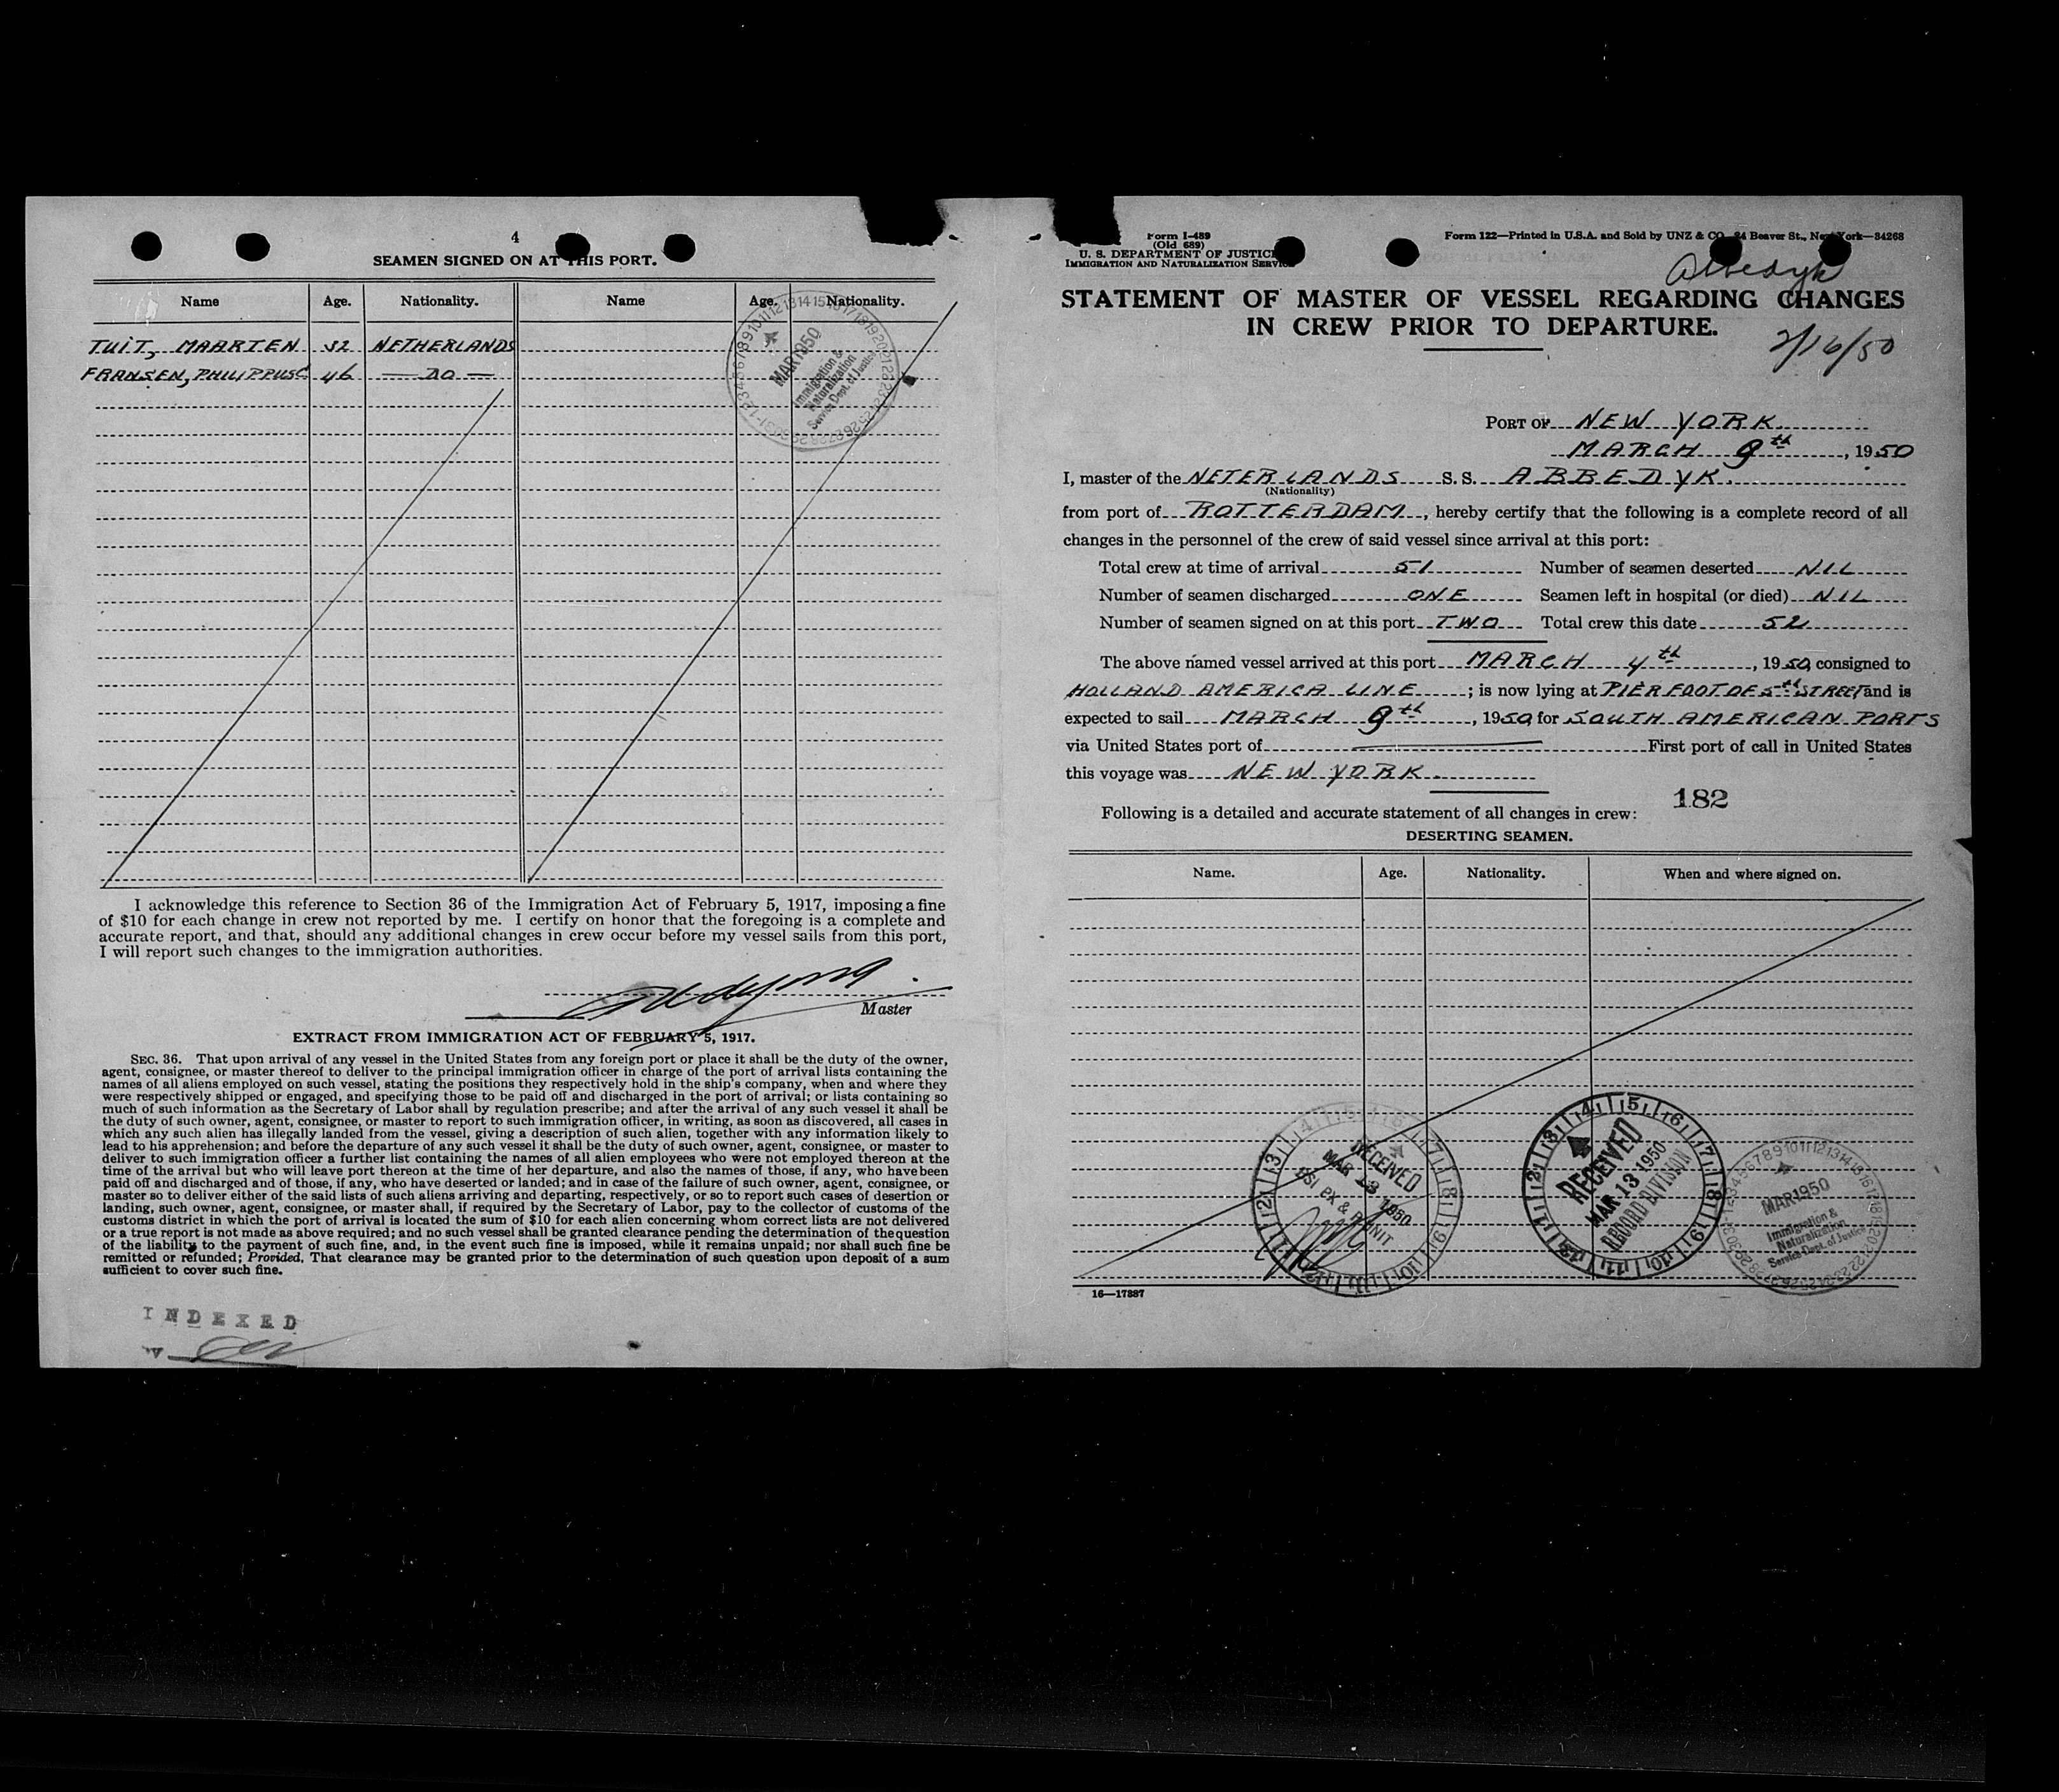 4
SEAMEN SIGNED ON AT THIS PORT.
Name Age. Nationality. Name Age. Nationality.
TUIT, MAARTEN 32 NETHERLANDS
FRANSEN, PHILIPPUS C 46 — DO —
MAR 1950
Immigration &
Naturalization
Service Dept. of Justice
I acknowledge this reference to Section 36 of the Immigration Act of February 5, 1917, imposing a fine
of $10 for each change in crew not reported by me. I certify on honor that the foregoing is a complete and
accurate report, and that, should any additional changes in crew occur before my vessel sails from this port,
I will report such changes to the immigration authorities.
Master
EXTRACT FROM IMMIGRATION ACT OF FEBRUARY 5, 1917.
SEC. 36. That upon arrival of any vessel in the United States from any foreign port or place it shall be the duty of the owner,
agent, consignee, or master thereof to deliver to the principal immigration officer in charge of the port of arrival lists containing the
names of all aliens employed on such vessel, stating the positions they respectively hold in the ship's company, when and where they
were respectively shipped or engaged, and specifying those to be paid off and discharged in the port of arrival; or lists containing so
much of such information as the Secretary of Labor shall by regulation prescribe; and after the arrival of any such vessel it shall be
the duty of such owner, agent, consignee, or master to report to such immigration officer, in writing, as soon as discovered, all cases in
which any such alien has illegally landed from the vessel, giving a description of such alien, together with any information likely to
lead to his apprehension; and before the departure of any such vessel it shall be the duty of such owner, agent, consignee, or master to
deliver to such immigration officer a further list containing the names of all alien employees who were not employed thereon at the
time of the arrival but who will leave port thereon at the time of her departure, and also the names of those, if any, who have been
paid off and discharged and of those, if any, who have deserted or landed; and in case of the failure of such owner, agent, consignee, or
master so to deliver either of the said lists of such aliens arriving and departing, respectively, or so to report such cases of desertion or
landing, such owner, agent, consignee, or master shall, if required by the Secretary of Labor, pay to the collector of customs of the
customs district in which the port of arrival is located the sum of $10 for each alien concerning whom correct lists are not delivered
or a true report is not made as above required; and no such vessel shall be granted clearance pending the determination of the question
of the liability to the payment of such fine, and, in the event such fine is imposed, while it remains unpaid; nor shall such fine be
remitted or refunded; Provided, That clearance may be granted prior to the determination of such question upon deposit of a sum
sufficient to cover such fine.
INDEXED
Form I-489
(Old 689)
U. S. DEPARTMENT OF JUSTICE
IMMIGRATION AND NATURALIZATION SERVICE
Form 122—Printed in U.S.A. and Sold by UNZ & CO. 24 Beaver St., New York—34268
Abbedyk
STATEMENT OF MASTER OF VESSEL REGARDING CHANGES
IN CREW PRIOR TO DEPARTURE.
2/16/50
PORT OF NEW YORK.
MARCH 9th, 1950
I, master of the NETERLANDS S. S. ABBEDYK.
(Nationality)
from port of ROTTERDAM, hereby certify that the following is a complete record of all
changes in the personnel of the crew of said vessel since arrival at this port:
Total crew at time of arrival 51 Number of seamen deserted NIL
Number of seamen discharged ONE Seamen left in hospital (or died) NIL
Number of seamen signed on at this port TWO Total crew this date 52
The above named vessel arrived at this port MARCH 4th, 1950, consigned to
HOLLAND AMERICA LINE; is now lying at PIER FOOT OF 5th STREET and is
expected to sail MARCH 9th, 1950, for SOUTH AMERICAN PORTS
via United States port of First port of call in United States
this voyage was NEW YORK.
182
Following is a detailed and accurate statement of all changes in crew:
DESERTING SEAMEN.
Name. Age. Nationality. When and where signed on.
RECEIVED
MAR 13 1950
RECEIVED
MAR 13 1950
RECORD DIVISION
MAR 1950
Immigration &
Naturalization
Service Dept. of Justice
16—17887